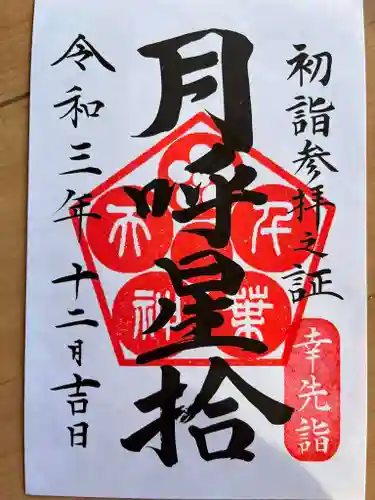 初詣参拝之証
月呼星拾
令和三年十二月吉日
幸先詣
千葉
天神